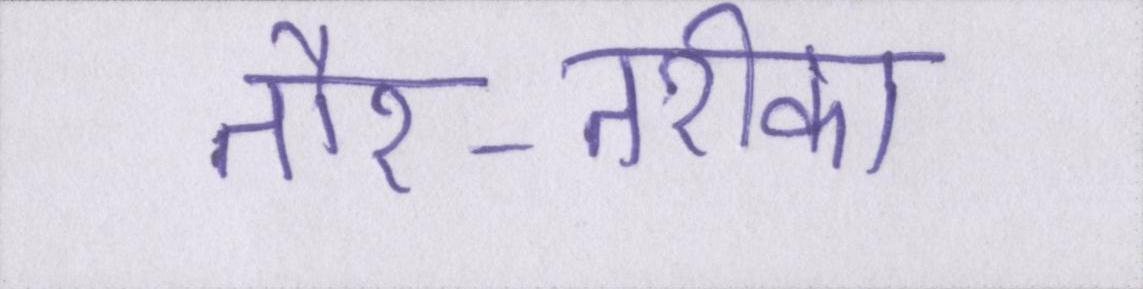 तौर-तरीका